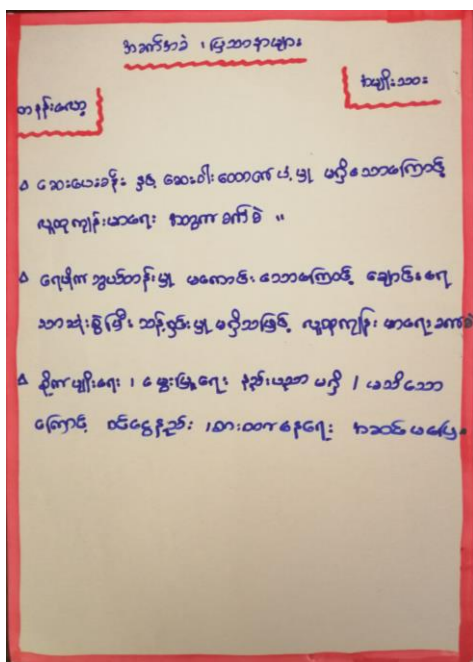 အခက်အခဲ ၊ ပြဿနာများ
တနန်းလော့
အမျိုးသား
ဆေးပေးခန်း နှင့် ဆေးဝါးထောက်ပံ့မှု မရှိသောကြောင့်
လူထုကျန်းမာရေး အတွက် ခက်ခဲ ။
ရေပိုက်သွယ်တန်းမှု မကောင်းသောကြောင့် ချောင်းရေ
သာသုံးစွဲပြီး သန့်ရှင်းမှု မရှိသဖြင့် လူထုကျန်းမာရေးခက်ခဲ
စိုက်ပျိုးရေး ၊ မွေးမြူရေး နည်းပညာ မရှိ / မသိသော
ကြောင့် ဝင်ငွေနည်း ၊ စားဝတ်နေရေး အဆင်မပြေ။